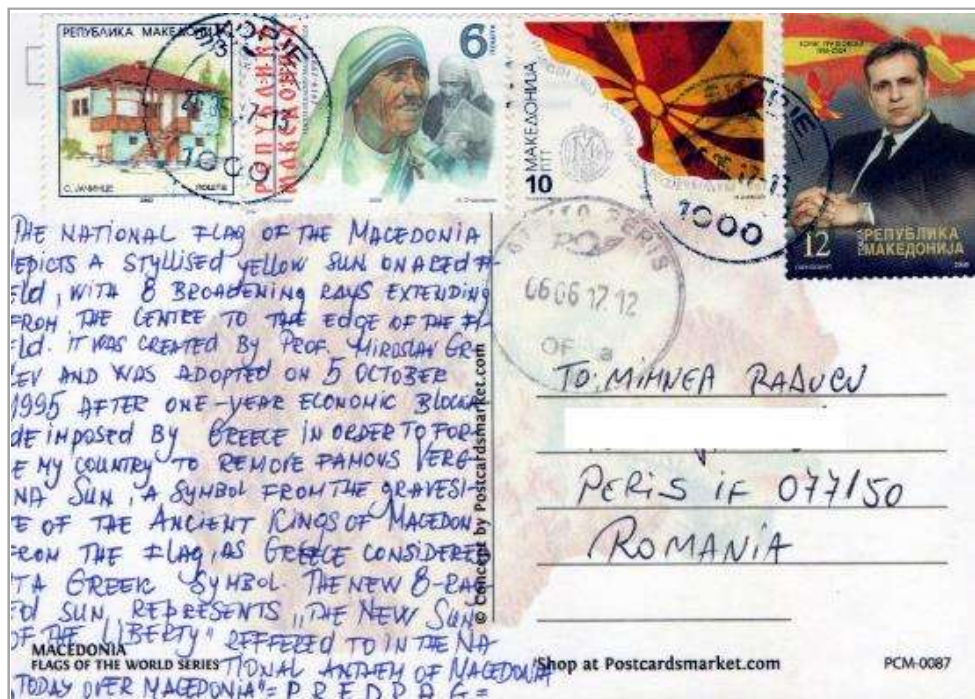 РЕПУБЛИКА МАКЕДОНИЈА
С. ЈАЧИНЦЕ
ПОШТА
2002
SKOPJE
1000
РЕПУБЛИКА
МАКЕДОНИЈА
6
МАКЕДОНИЈА
ПТТ
10
1000
БОРИС ТРАЈКОВСКИ
РЕПУБЛИКА
МАКЕДОНИЈА
12
PERIS
06 06 17.12
OF a
THE NATIONAL FLAG OF THE MACEDONIA
EPICTS A STYLLISED YELLOW SUN ON A RED FI-
ELD, WITH 8 BROADENING RAYS EXTENDING
FROM THE CENTRE TO THE EDGE OF THE FI-
ELD. IT WAS CREATED BY PROF. MIROSLAV GR-
EV AND WAS ADOPTED ON 5 OCTOBER
1995 AFTER ONE-YEAR ECONOMIC BLOCKA-
DE IMPOSED BY GREECE IN ORDER TO FOR-
E MY COUNTRY TO REMOVE FAMOUS VERGI-
NA SUN, A SYMBOL FROM THE GRAVESI-
E OF THE ANCIENT KINGS OF MACEDON-
FROM THE FLAG, AS GREECE CONSIDERED
T A GREEK SYMBOL. THE NEW 8-RAY-
ED SUN REPRESENTS „THE NEW SUN
OF THE LIBERTY" REFFERED TO IN THE NA-
TIONAL ANTHEM OF MACEDONIA
„TODAY OVER MACEDONIA" = PREDRAG =
MACEDONIA
FLAGS OF THE WORLD SERIES
© Concept by Postcardsmarket.com
TO: MIHNEA RADUCU
PERIS IF 077150
ROMANIA
Shop at Postcardsmarket.com
PCM-0087